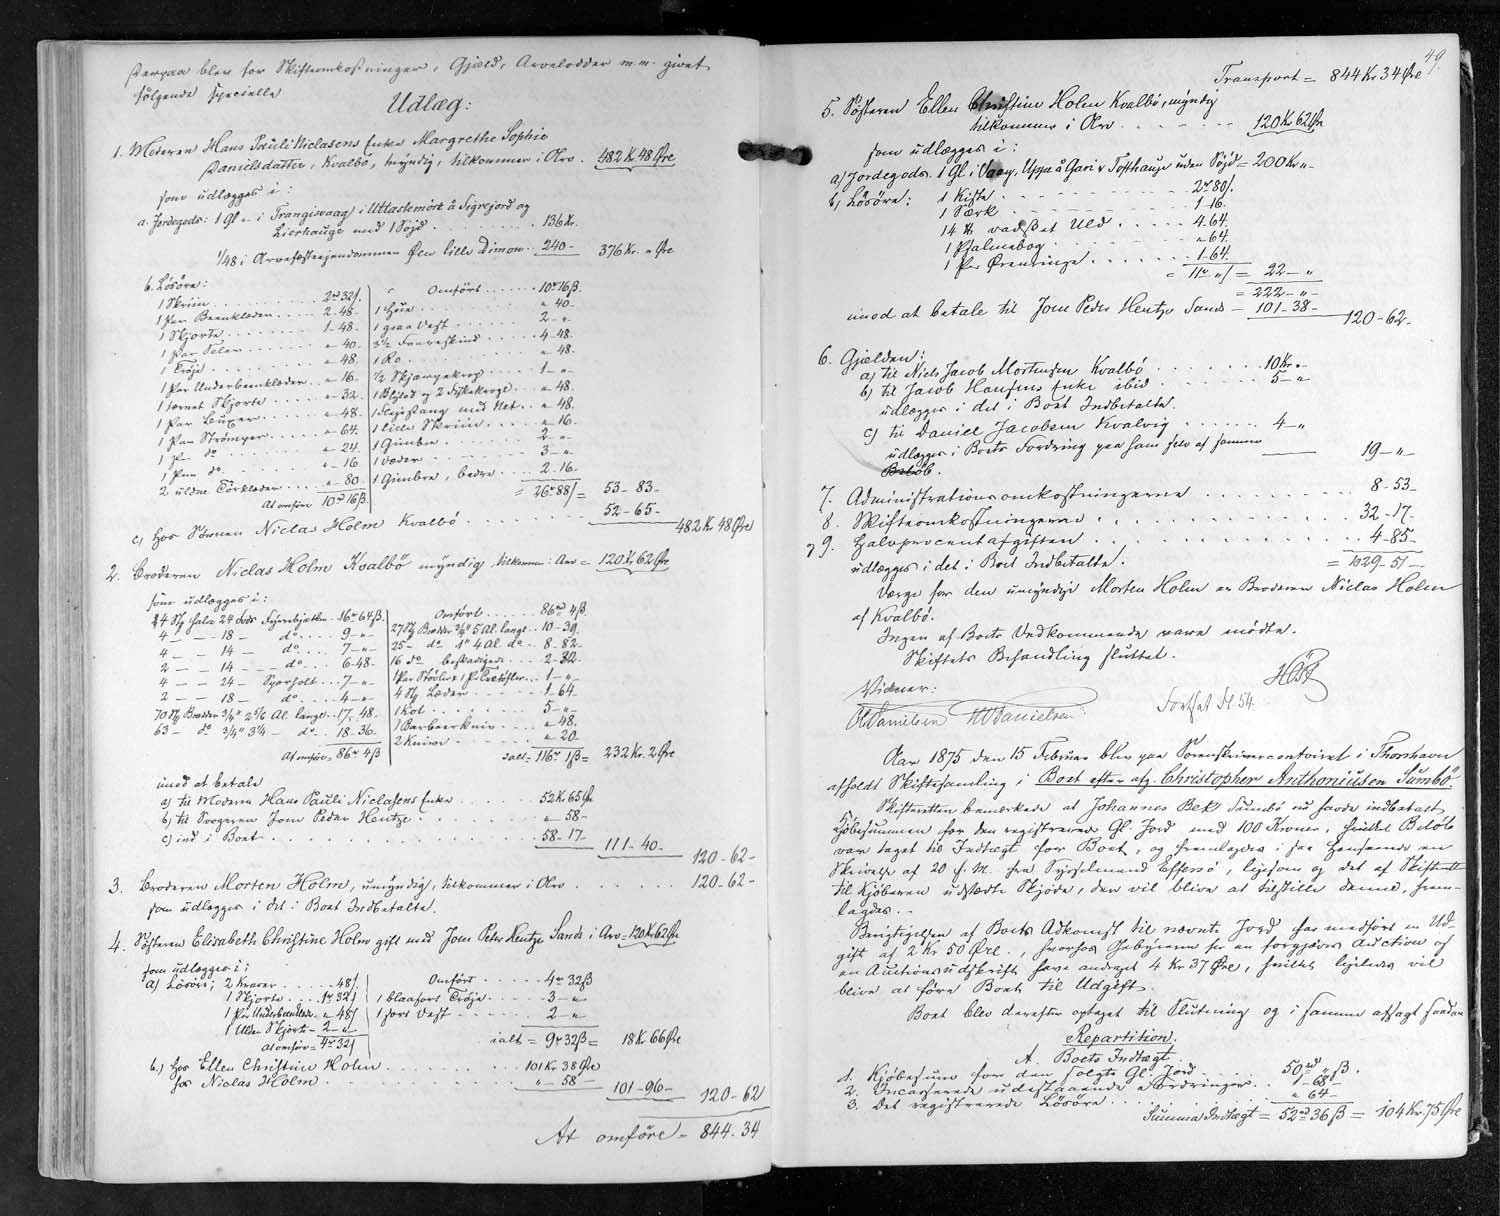 Derpaa blev for Skifteomkostninger, Gjæld, Arvelodder m.m. givet
følgende specielle
Udlæg:
1. Moderen Hans Pauli Niclasens Enke Margrethe Sophie
Danielsdatter, Kvalbö, myndig, tilkommer i Arv . 482 Kr 48 Øre
som udlægges i:
a. Jordegods: 1 Gl – i Trangisvaag i Uttastemört á Signejord og
Lierhauge med 1 Söjd . . . . . 136 Kr.
1/48 i Arvefæsteejendommen Øen lille Dimon . . 240 – 376 Kr. „ Øre
b. Lösöre:
1 Skriin . . . . 2 rd 32 ß
1 Par Beenklæder . . . . 2 - 48 -
1 Skjorte . . . . 1 - 48 -
1 Par Seler . . . . „ - 40 -
1 Tröje . . . . „ - 48 -
1 Par Underbeenklæder . . „ - 16 -
1 ternet Skjorte . . . . „ - 32 -
1 Par Buxer . . . . „ - 48 -
1 Par Strömper . . . . „ - 64 -
1 Par do . . . . „ - 24 -
1 Par do . . . . „ - 16
2 uldne Törklæder . . . . „ - 80
At omföre 10 rd 16 ß
Omfört . . . . 10 rd 16 ß
1 Hue . . . . „ - 40 -
1 graa Vest . . . . 2 - „
3½ Faareskind . . . . 4 - 48
1 Ro . . . . „ - 48
½ Skjærpekrog . . . . 1 - „
1 Blylod og 2 Fiskekroge . . „ - 48
1 Fleigstang med Net . . „ - 48
1 lille Skriin . . . . „ - 16
1 Gimbre . . . . 2 - „
1 Væder . . . . 3 - „
1 Gimbre, bedre . . . . 2 - 16 -
= 26 rd 88 ß = 53 - 83 -
c, hos Sønnen Niclas Holm Kvalbö . . . . 52 - 65 - 482 Kr 48 Øre
2. Broderen Niclas Holm Kvalbö myndig, tilkomm: i Arv = 120 Kr 62 Øre
som udlægges i:
14 Stk halv 24 Fods Fyrrebjælker 16 rd 64 ß
4 — — 18 — do . . . . 9 - „
4 — — 14 — do . . . . 7 - „
2 — — 14 — do . . . . 6 - 48 -
4 — — 24 — Sparholt . . . 7 - „
2 — — 18 do . . . . 4 - „
70 Stk Brædder ¾" 2 5/6 Al. lange . 17 - 48
63 — do ¾" 3¼ — do . . 18 - 36
At omföre = 86 rd 4 ß
Omfört . . . . 86 rd 4 ß
27 Stk Brædder ¾" 5 Al. lange . . 10 - 39
25 — do 1" 4 Al. do . . 8 - 82 -
16 do beskadigede . . . 2 - 32 -
1 Par Støvler & 1 Par Tøfler . . . 1 - „
4 Stk Læder . . . . 1 - 64 -
1 Kot . . . . 5 - „
1 Barbeerkniv . . . . „ - 48
2 Knive . . . . „ - 20 -
ialt = 116 rd 1 ß = 232 Kr. 2 Øre
imod at betale
a) til Moderen Hans Pauli Niclasens Enke . . . . 52 Kr 65 Øre
b) til Svogeren Jom Peder Hentze . . . . „ - 58 -
c) ind i Boet . . . . 58 - 17 - 111 - 40 - 120 - 62 -
3. Broderen Morten Holm, umyndig, tilkommer i Arv . . . . 120 - 62 -
som udlægges i det i Boet Indbetalte.
4. Søsteren Elisabeth Christine Holm gift med Jom Peter Hentze Sands i Arv = 120 Kr 62 Øre
som udlægges i:
a) Lösöre: 2 Kraver . . . 48 ß
1 Skjorte . . . 1 rd 32 ß
1 Par Underbeenklæder . „ 48 ß
1 Ulden Skjort – 2 – „
At omföre = 4 rd 32 ß
Omfört . . . . 4 rd 32 ß
1 blaafarv Tröje . . . . 3 - „
1 farv Vest . . . . 2 - „
ialt = 9 rd 32 ß = 18 Kr 66 Øre
b.) Hos Ellen Christine Holm . . . . 101 Kr 38 Øre
hos Niclas Holm . . . . „ - 58 — 101 - 96 - 120 - 62
At omföre = 844 . 34
49.
Transport = 844 Kr 34 Øre
5. Søsteren Ellen Christine Holm Kvalbö, myndig
tilkommer i Arv . . . . 120 Kr 62 Øre
som udlægges i:
a) Jordegods. 1 Gl i Vaag, Uppa á Gari & Tofthauge uden Söjd = 200 Kr „
b) Lösöre: 1 Kiste . . . . 2 rd 80 ß.
1 Særk . . . . 1 - 16.
14 ℔ vadsket Uld . . . . 4 - 64.
1 Psalmebog . . . . „ - 64.
1 Par Ørenringe . . . . 1 - 64.
= 11 rd „ ß = 22 — „
= 222 — „ —
imod at betale til Jom Peder Hentze Sands — 101 - 38 — 120 - 62 -
6. Gjælden:
a) til Niels Jacob Mortensen Kvalbö . . . . 10 Kr. „ -
b) til Jacob Hansens Enke ibid . . . . 5 - „
udlægges i det i Boet Indbetalte.
c) til Daniel Jacobsen Kvalvig . . . . 4 - „
udlægges i Boets Fordring paa ham selv af samme 19 — „ —
Beløb.
7. Administrationsomkostningerne . . . . 8 - 53 -
8. Skifteomkostningerne . . . . 32 - 17 -
9. Halvprocentafgiften . . . . 4 - 85 -
udlægges i det i Boet Indbetalte. = 1029 - 51 -
Værge for den umyndige Morten Holm er Broderen Niclas Holm
af Kvalbö.
Ingen af Boets Vedkommende vare mødte.
Skiftets Behandling sluttet.
Høst
Vidner:
Ol Danielsen HDanielsen
Fortsat Fol. 54
Aar 1875 den 15 Februar blev paa Sorenskrivercontoiret i Thorshavn
afholdt Skiftesamling i Boet efter afg. Christopher Anthoniusen Sumbö.
Skifteretten bemærkede at Johannes Bek Sumbö nu havde indbetalt
Kjöbesummen for den registrerede Gl. Jord med 100 Kroner, hvilket Belöb
var taget til Indtægt for Boet, og fremlagdes i saa Henseende en
Skrivelse af 20 f. M. fra Sysselmand Effersö, ligesom og det af Skifteretten
til Kjöberen udstedte Skjöde, der vil blive at tilstille denne, frem-
lagdes. –
Berigtigelsen af Boets Adkomst til nævnte Jord har medfört en Ud-
gift af 2 Kr 50 Øre . , hvorhos Gebyrerne for en forgjæves Auction og
en Auctionsudskrift have andraget 4 Kr 37 Øre, hvilket ligeledes vil
blive at före Boet til Udgift.
Boet blev derefter optaget til Slutning og i samme afsagt saadan
Repartition.
A. Boets Indtægt.
1. Kjöbesum for den solgte Gl. Jord . . . . 50 rd „ ß.
2. Incasserede udestaaende Fordringer . . 1 - 68 -
3. Det registrerede Lösöre . . . . „ - 64 -
Summa Indtægt = 52 rd 36 ß = 104 Kr. 75 Øre